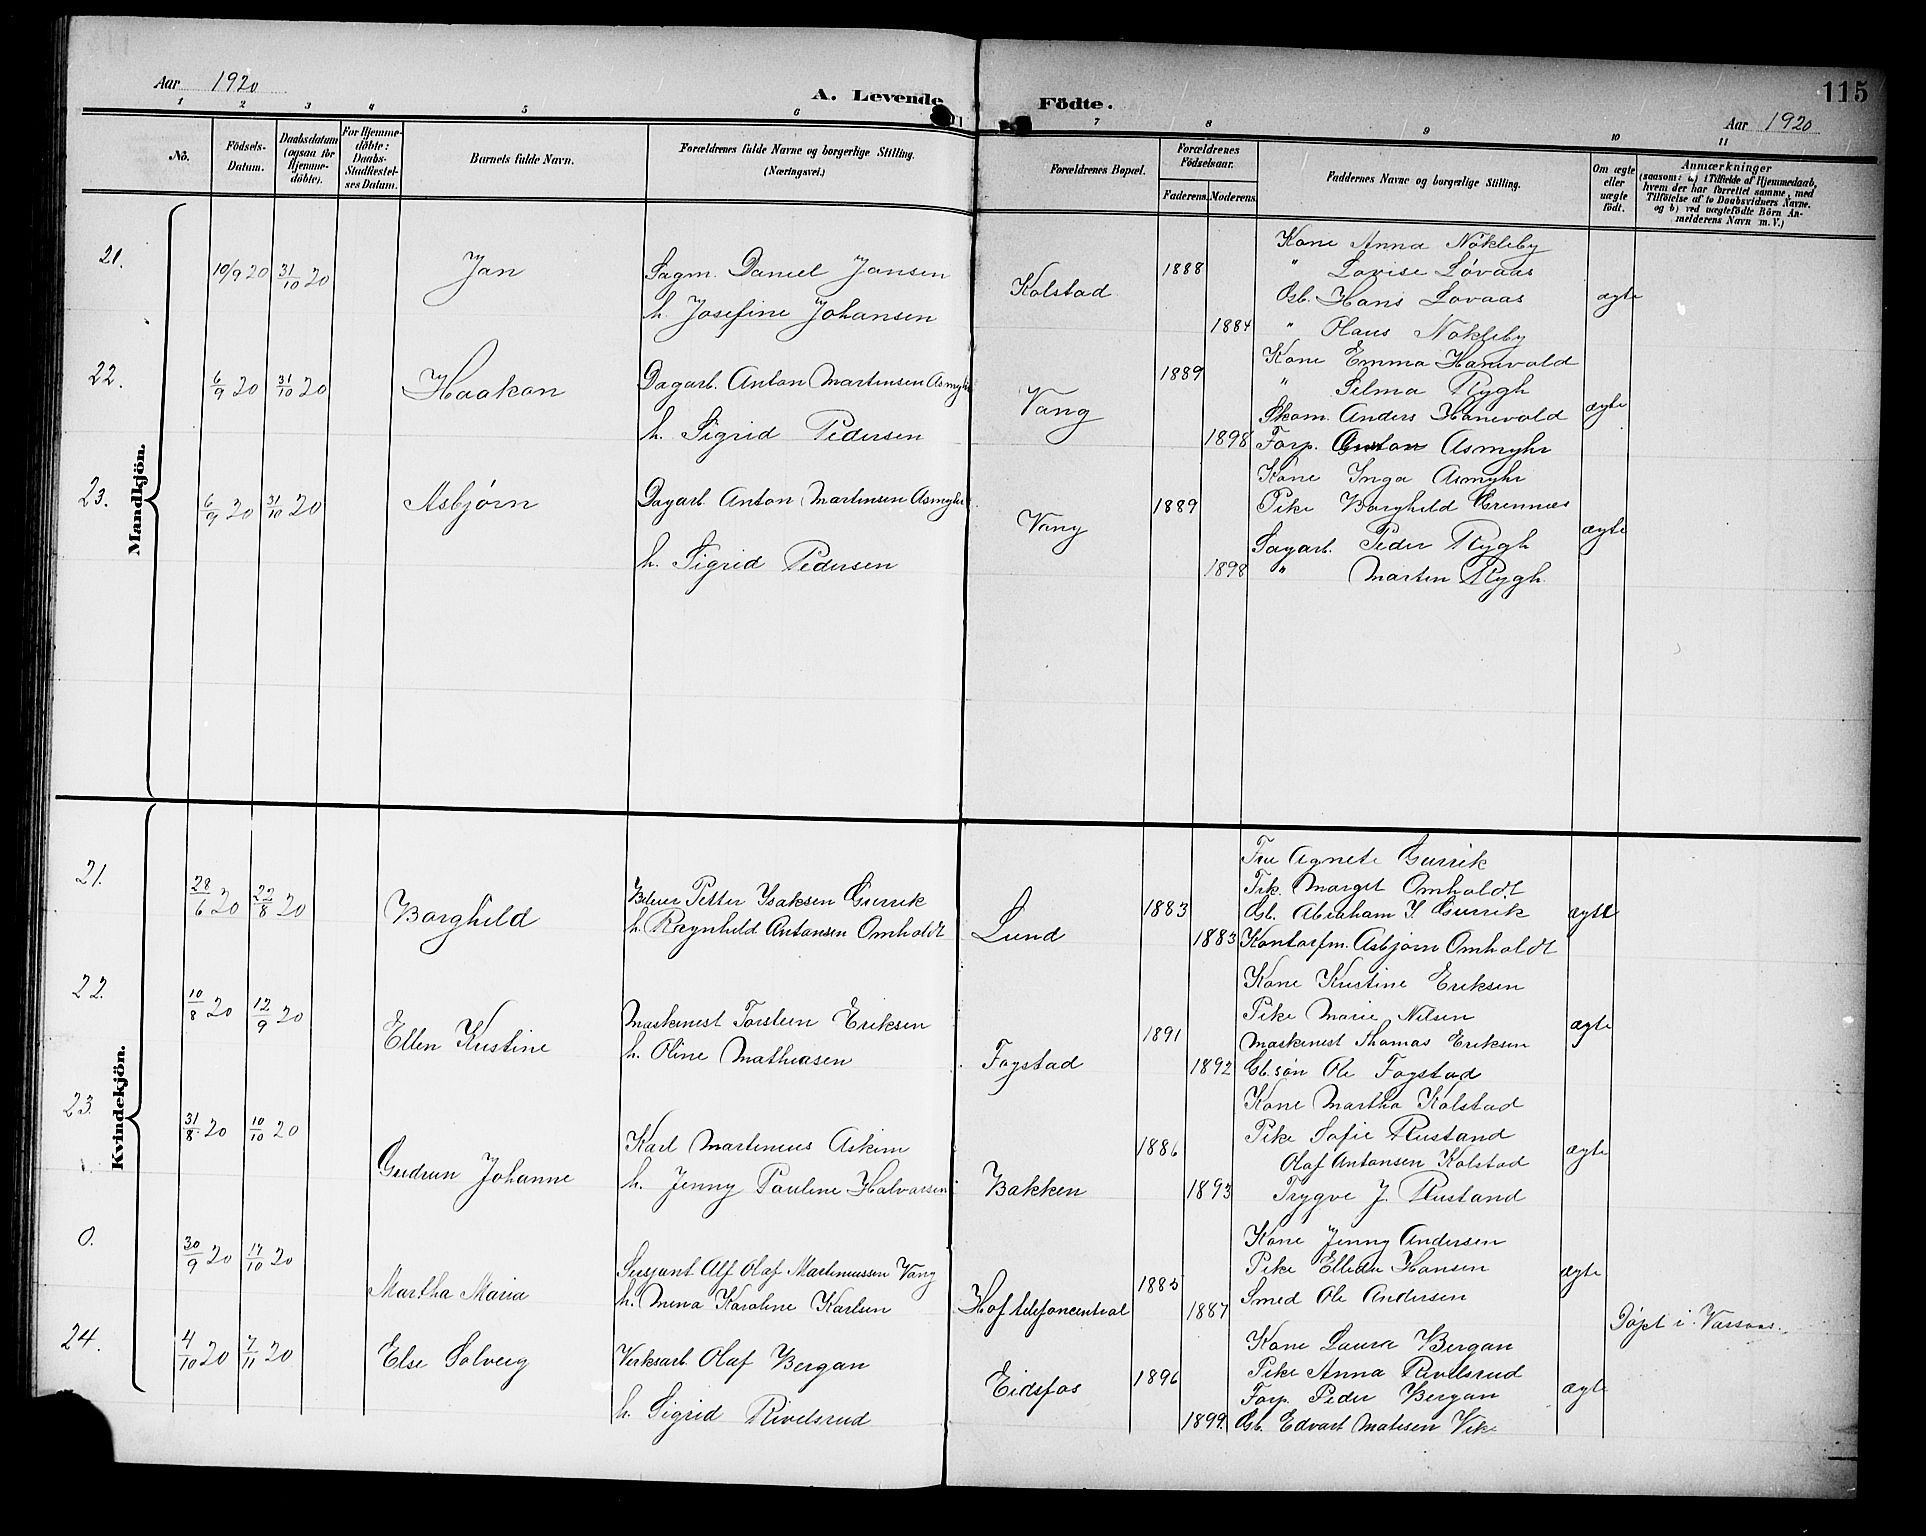 Aar 1920
A. Levende Födte.
115
Aar 1920
1 2 3 4 5 6 7 8 9 10 11
No.
Födsels-Datum.
Daabsdatum (ogsaa for Hjemme-döbte).
For Hjemme-döbte: Daabs-Stadfæstel-ses Datum.
Barnets fulde Navn.
Forældrenes fulde Navne og borgerlige Stilling. (Næringsvei.)
Forældrenes Bopæl.
Forældrenes Födselsaar.
Faderens. Moderens.
Faddernes Navne og borgerlige Stilling.
Om ægte eller uægte födt.
Anmærkninger
(saasom: a) i Tilfælde af Hjemmedaab, hvem der har forrettet samme, med Tilföielse af to Daabsvidners Navne. og b) ved uægtefödte Börn An-melderens Navn m. V.)
Mandkjön.
21. 10/9 20 31/10 20 Jan
Sagm. Daniel Jansen
h. Josefine Johansen
Kolstad 1888 1884
Kone Anna Nökleby
" Lovise Løvaas
Gb. Hans Lovaas
" Olaus Nökleby
ægte
22. 6/9 20 31/10 20 Haakon
Dagarb. Anton Martinsen Asmyhr
h. Sigrid Pedersen
Vang 1889 1898
Kone Emma Hanevold
" Selma Rygh
Skom. Anders Hanevold
Forp. Gustav Asmyhr
ægte
23. 6/9 20 31/10 20 Asbjørn
Dagarb. Anton Martinsen Asmyhr
h. Sigrid Pedersen
Vang 1889 1898
Kone Inga Asmyhr
Pike Borghild Grennæs
Sagarb. Peder Rygh
" Martin Rygh.
ægte
Kvindekjön.
21. 28/6 20 22/8 20 Borghild
Petter Isaksen Gurrik
h. Ragnhild Antonsen Omholdt
Lund 1883 1883
Fru Agnete Gurrik
Frk. Margit Omholdt
Gb. Abraham I. Gurrik
Kontorfm. Asbjørn Omholdt
ægte
22. 10/8 20 12/9 20 Ellen Kristine
Maskinist Torstein Eriksen
h. Oline Mathiasen
Fogstad 1891 1892
Kone Kristine Eriksen
Pike Marie Nilsen
Maskinist Thomas Eriksen
Gb.søn Ole Fogstad
ægte
23. 31/8 20 10/10 20 Gudrun Johanne
Karl Martinius Askim
h. Jenny Pauline Halvorsen
Bakken 1886 1893
Kone Martha Kolstad
Pike Sofie Rustand
Olaf Antonsen Kolstad
Trygve J. Rustand
ægte
0. 30/9 20 17/10 20 Martha Maria
Sersjant Alf Olaf Martinussen Vang
h. Mina Karoline Karlsen
Hof telefoncentral 1885 1887
Kone Jenny Andersen
Pike Ellida Hansen
Smed Ole Andersen
ægte
Døpt i Vassaas.
24. 4/10 20 7/11 20 Else Solveig
Verksarb. Olaf Bergan
h. Sigrid Rivelsrud
Eidsfos 1896 1899.
Kone Laura Bergan
Pike Anna Rivelsrud
Forp. Peder Bergan
Gb. Edvart Matisen Vik
ægte